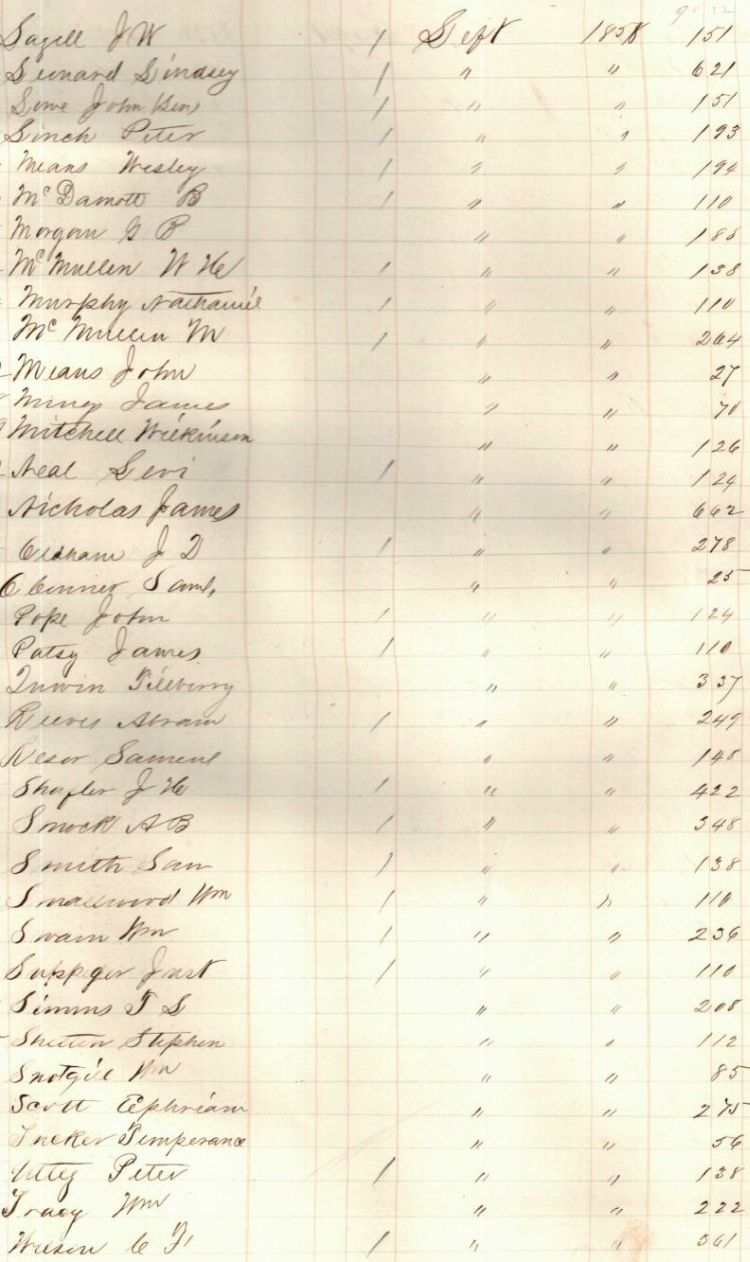 Sagell J W 1 Left 1858 151
Leonard Lindsey 1 " " 621
Lowe John (Ben) 1 " " 151
Linch Peter 1 " " 193
Means Wesley 1 " " 194
McDamott B 1 " " 110
Morgan G B " " 185
McMullen W H 1 " " 138
Murphy Nathaniel 1 " " 110
McMullen M 1 " " 264
Means John " " 27
James " " 70
Mitchell Wilkinson " " 126
Neal Levi 1 " " 124
Nicholas James " " 662
J D 1 " " 278
Saml. " " 25
Pope John 1 " " 124
Patsy James 1 " " 110
" " 337
Reeves Abram 1 " " 249
Resor Samuel " " 148
Shafler J H 1 " " 422
Smock A B 1 " " 348
Smith Sam 1 " " 138
Smallwood Wm 1 " " 110
Swain Wm 1 " " 236
Suppger Just 1 " " 110
Simms T L " " 208
Stephen " " 112
Wm " " 85
Scott Ephriam " " 275
Tucker Temperance " " 56
Uttey Peter 1 " " 138
Tracy Wm " " 222
Wilson C F 1 " " 361